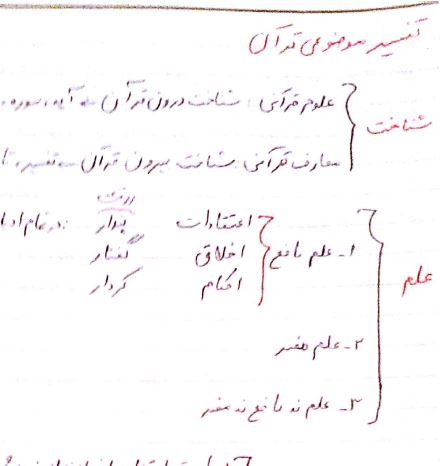 تفسیر موضوعی قرآن
شناخت
علوم قرآنی: شناخت درون قرآن ← آیه، سوره،
معارف قرآنی: شناخت بیرون قرآن ← تفسیر، تا
علم
۱- علم نافع
اعتقادات پندار در تمام
اخلاق گفتار
احکام کردار
۲- علم مضر
۳- علم نه نافع نه مضر